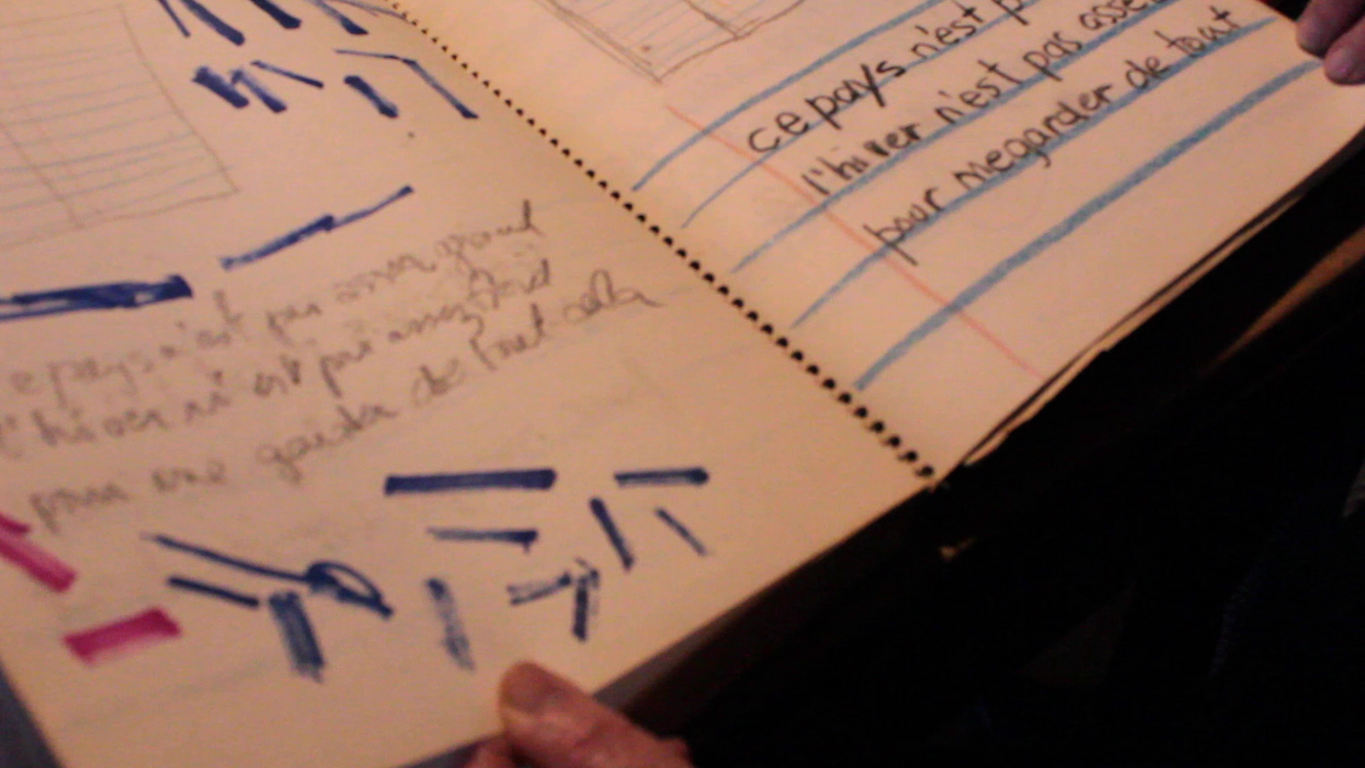 e pays n'est pas assez grand
l'hiver n'est pas assez froid
pour me garder de tout cela
ce pays n'est p
l'hiver n'est pas asse
pour megarder de tout